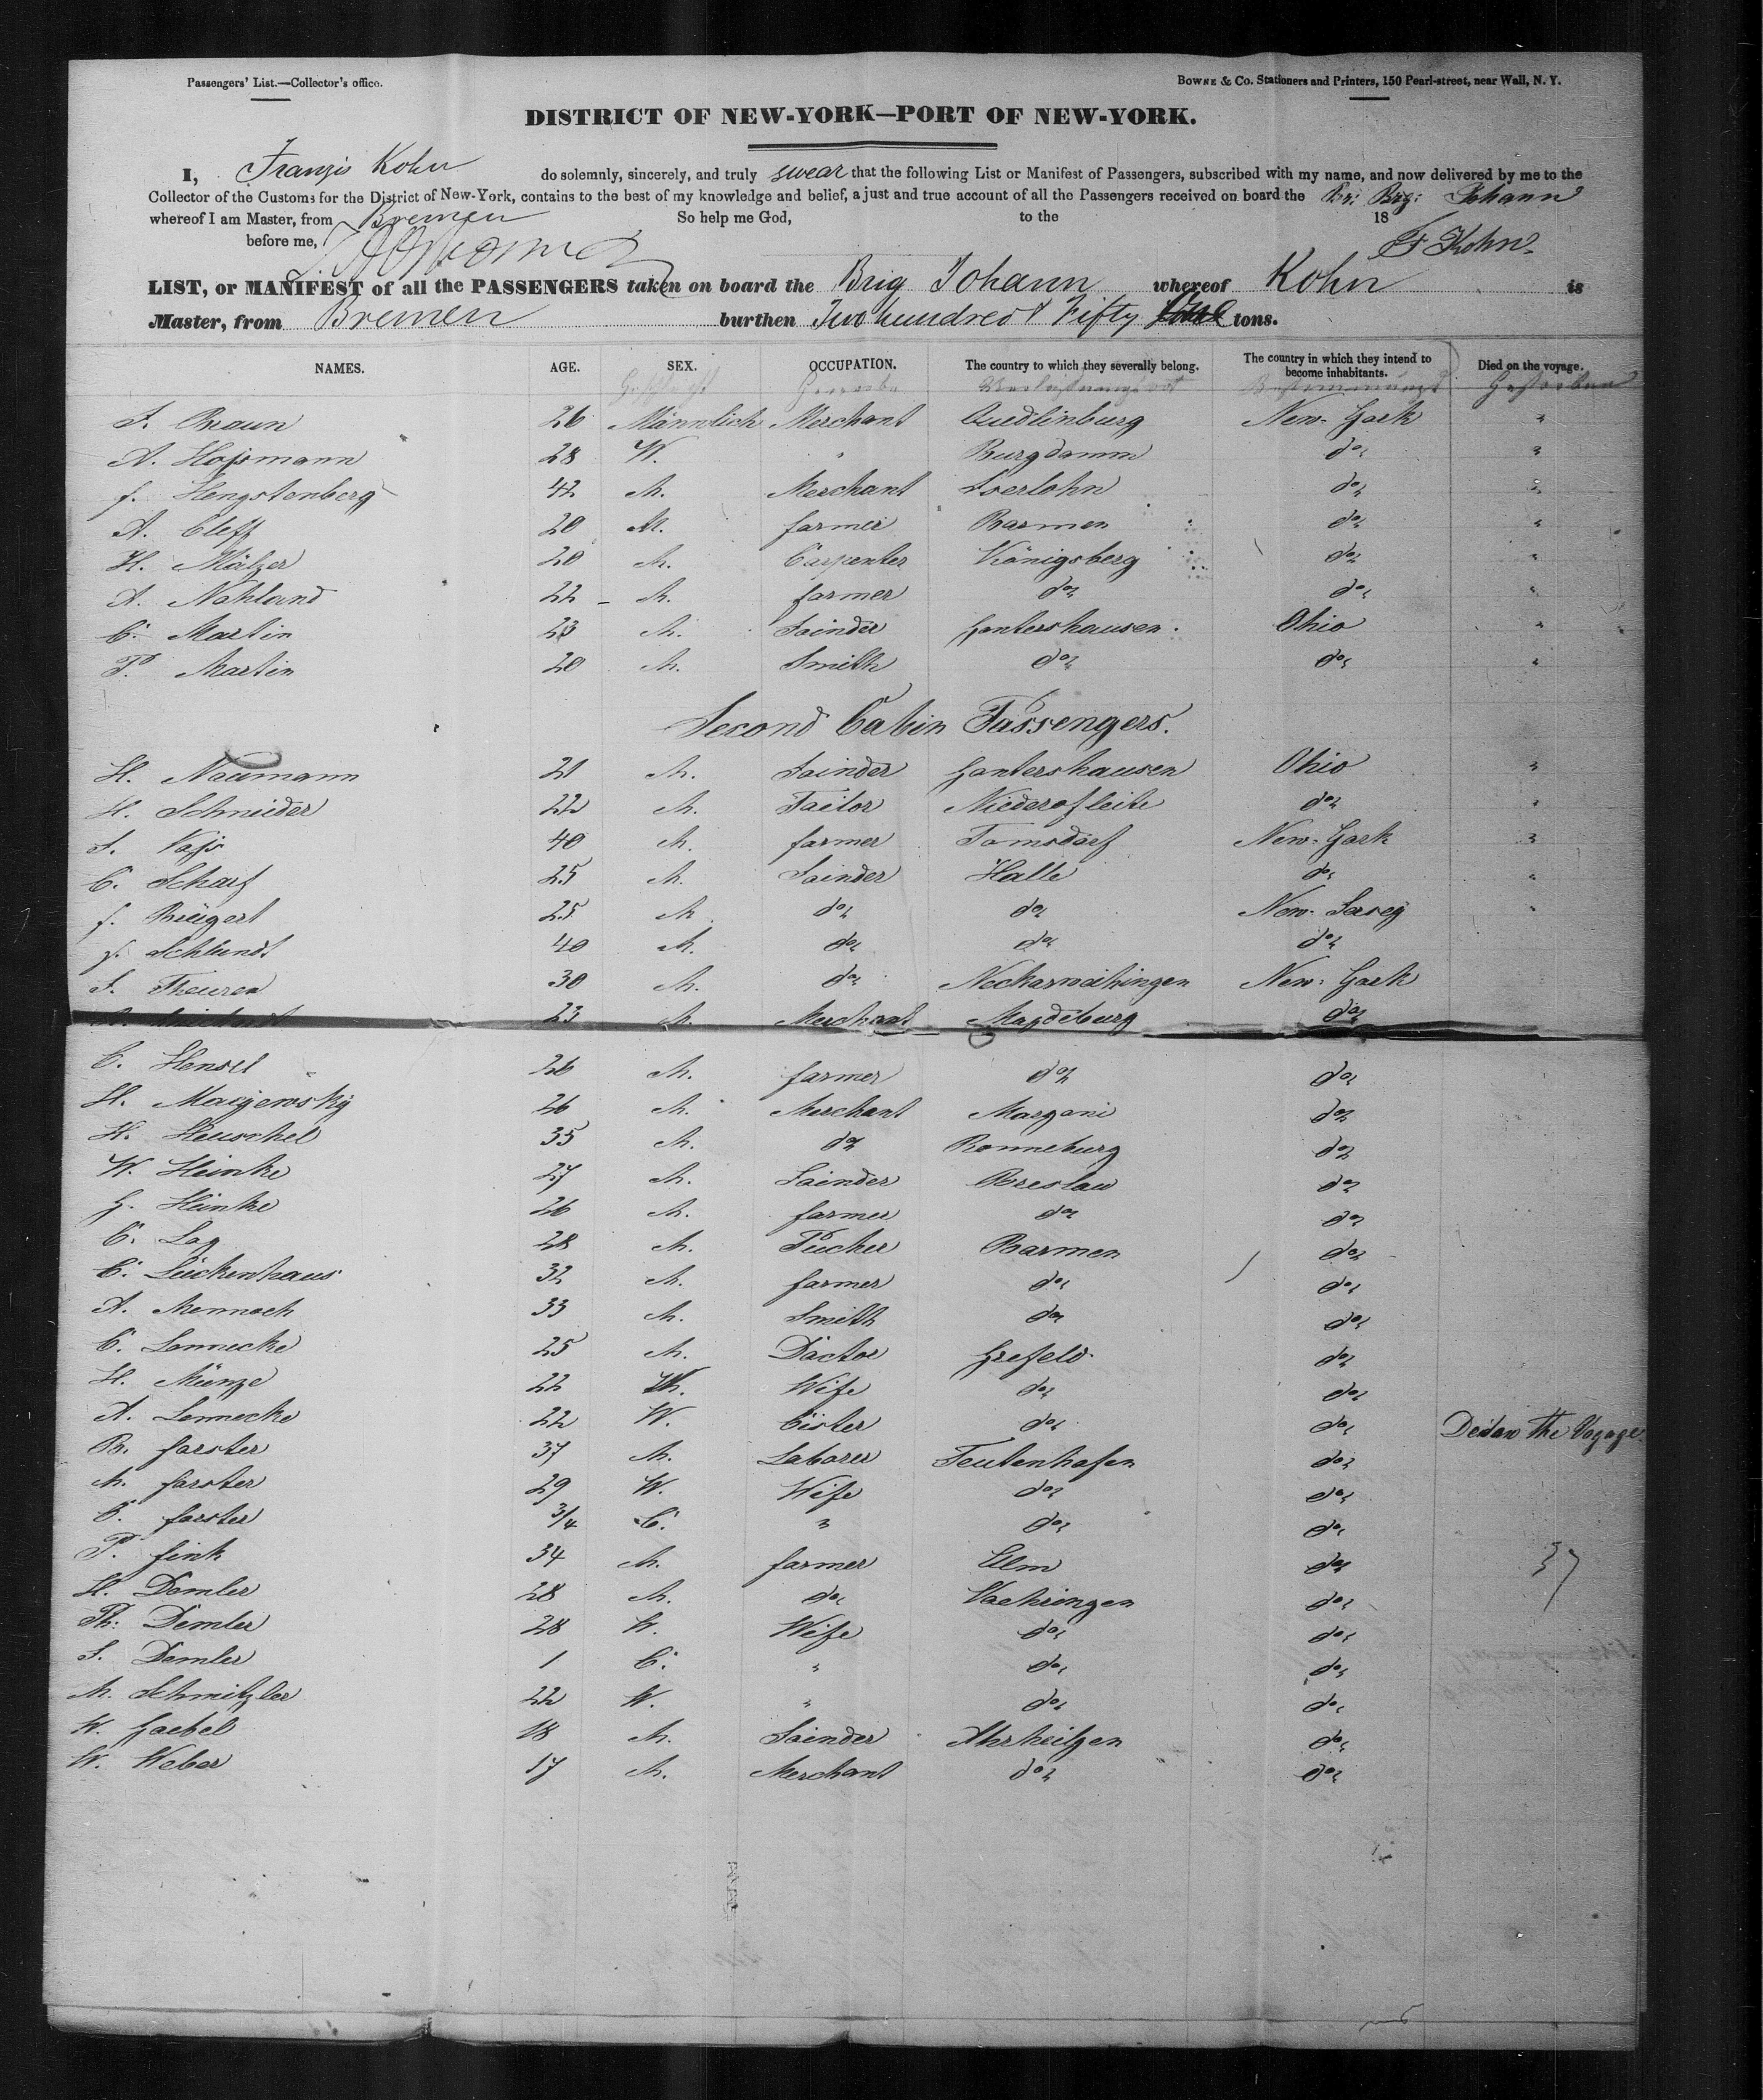 Passengers' List.—Collector's office.
BOWNE & Co. Stationers and Printers, 150 Pearl-street, near Wall, N. Y.
DISTRICT OF NEW-YORK—PORT OF NEW-YORK.
I, Franzis Kohn do solemnly, sincerely, and truly swear that the following List or Manifest of Passengers, subscribed with my name, and now delivered by me to the
Collector of the Customs for the District of New-York, contains to the best of my knowledge and belief, a just and true account of all the Passengers received on board the Br: Brg: Johann
whereof I am Master, from Bremen So help me God, to the 18
before me, F Kohn
LIST, or MANIFEST of all the PASSENGERS taken on board the Brig Johann whereof Kohn is
Master, from Bremen burthen Two hundred & Fifty tons.
NAMES. AGE. SEX. OCCUPATION. The country to which they severally belong. The country in which they intend to become inhabitants. Died on the voyage.
Geschlecht Gewerbe Gestorben
J. Braun 26 Männlich Merchant Quedlinburg New-York "
A. Hossmann 28 W. " Burgdamm do "
f. Hengstenberg 42 M. Merchant Iserlohn do "
A. Cleff 20 M. farmer Barmen do "
H. Mälzer 20 M. Carpenter Königsberg do "
A. Nohland 22 M. farmer do do "
C. Martin 23 M. Joinder Gontershausen Ohio "
P. Martin 20 M. Smith do do "
Second Cabin Passengers.
H. Naumann 21 M. Joinder Gontershausen Ohio "
H. Schnieder 22 M. Tailor Niederofleite do "
J. Voss 40 M. farmer Tomsdorf New-York "
C. Scharf 25 M. Joinder Halle do "
f. Rüegert 25 M do do New-Jersey "
f. Schlundt 40 M. do do do
J. Theurer 30 M. do Neckarweihingen New-York
23 M. Merchant Magdeburg do
C. Hensel 26 M. farmer do do
H. Mayerosky 26 M. Merchant Margoni do
H. Heuschel 35 M. do Ronneburg do
W. Heinke 27 M. Joinder Breslau do
G. Heinke 26 M. farmer do do
C. Log 28 M. Pucher Barmen do
C. Lückenhaus 32 M. farmer do do
A. Mennoch 33 M. Smith do do
C. Lonnecke 25 M. Doctor Grefeld do
H. Münze 22 W. Wife do do
A. Lonnecke 22 W. Cister do do Deid on the Voyage
B. farster 37 M. Laborer Teutenhofen do
M. farster 29 W. Wife do do
C. farster 3/4 C. " do do
P. fink 34 M. farmer Ulm do 37
H. Demler 28 M. do Vaehringen do
Th: Demler 28 W. Wife do do
J. Demler 1 C. " do do
M. Schmitzler 22 W. " do do
W. Gaebel 18 M. Joinder Ahrheilgen do
W. Weber 17 M. Merchant do do